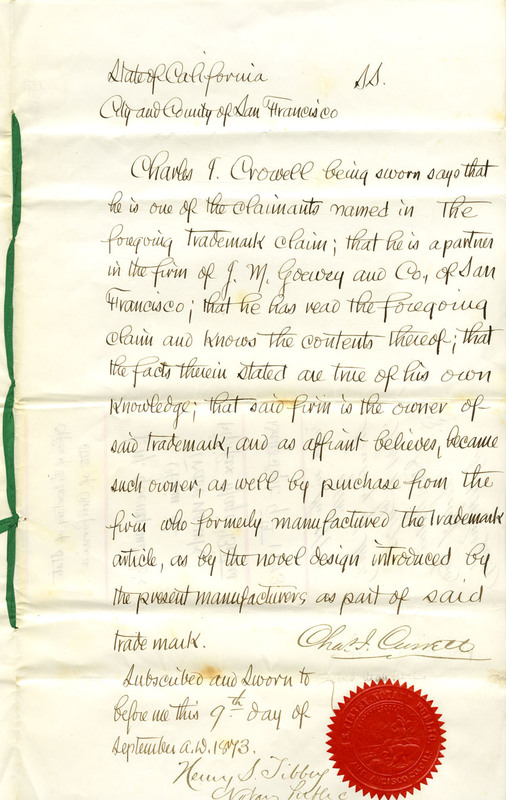 State of California SS.
City and County of San Francisco
Charles I. Crowell being sworn says that
he is one of the claimants named in the
foregoing trademark claim; that he is a partner
in the firm of J. M. Goewey and Co., of San
Francisco; that he has read the foregoing
claim and knows the contents thereof; that
the facts therein stated are true of his own
knowledge; that said firm is the owner of
said trademark, and as affiant believes, became
such owner, as well by purchase from the
firm who formerly manufactured the trademark
article, as by the novel design introduced by
the present manufacturers as part of said
trade mark. Chas. I.
Subscribed and Sworn to
before me this 9th day of
September A.D. 1873.
Henry S. Tibbey
Notary Public